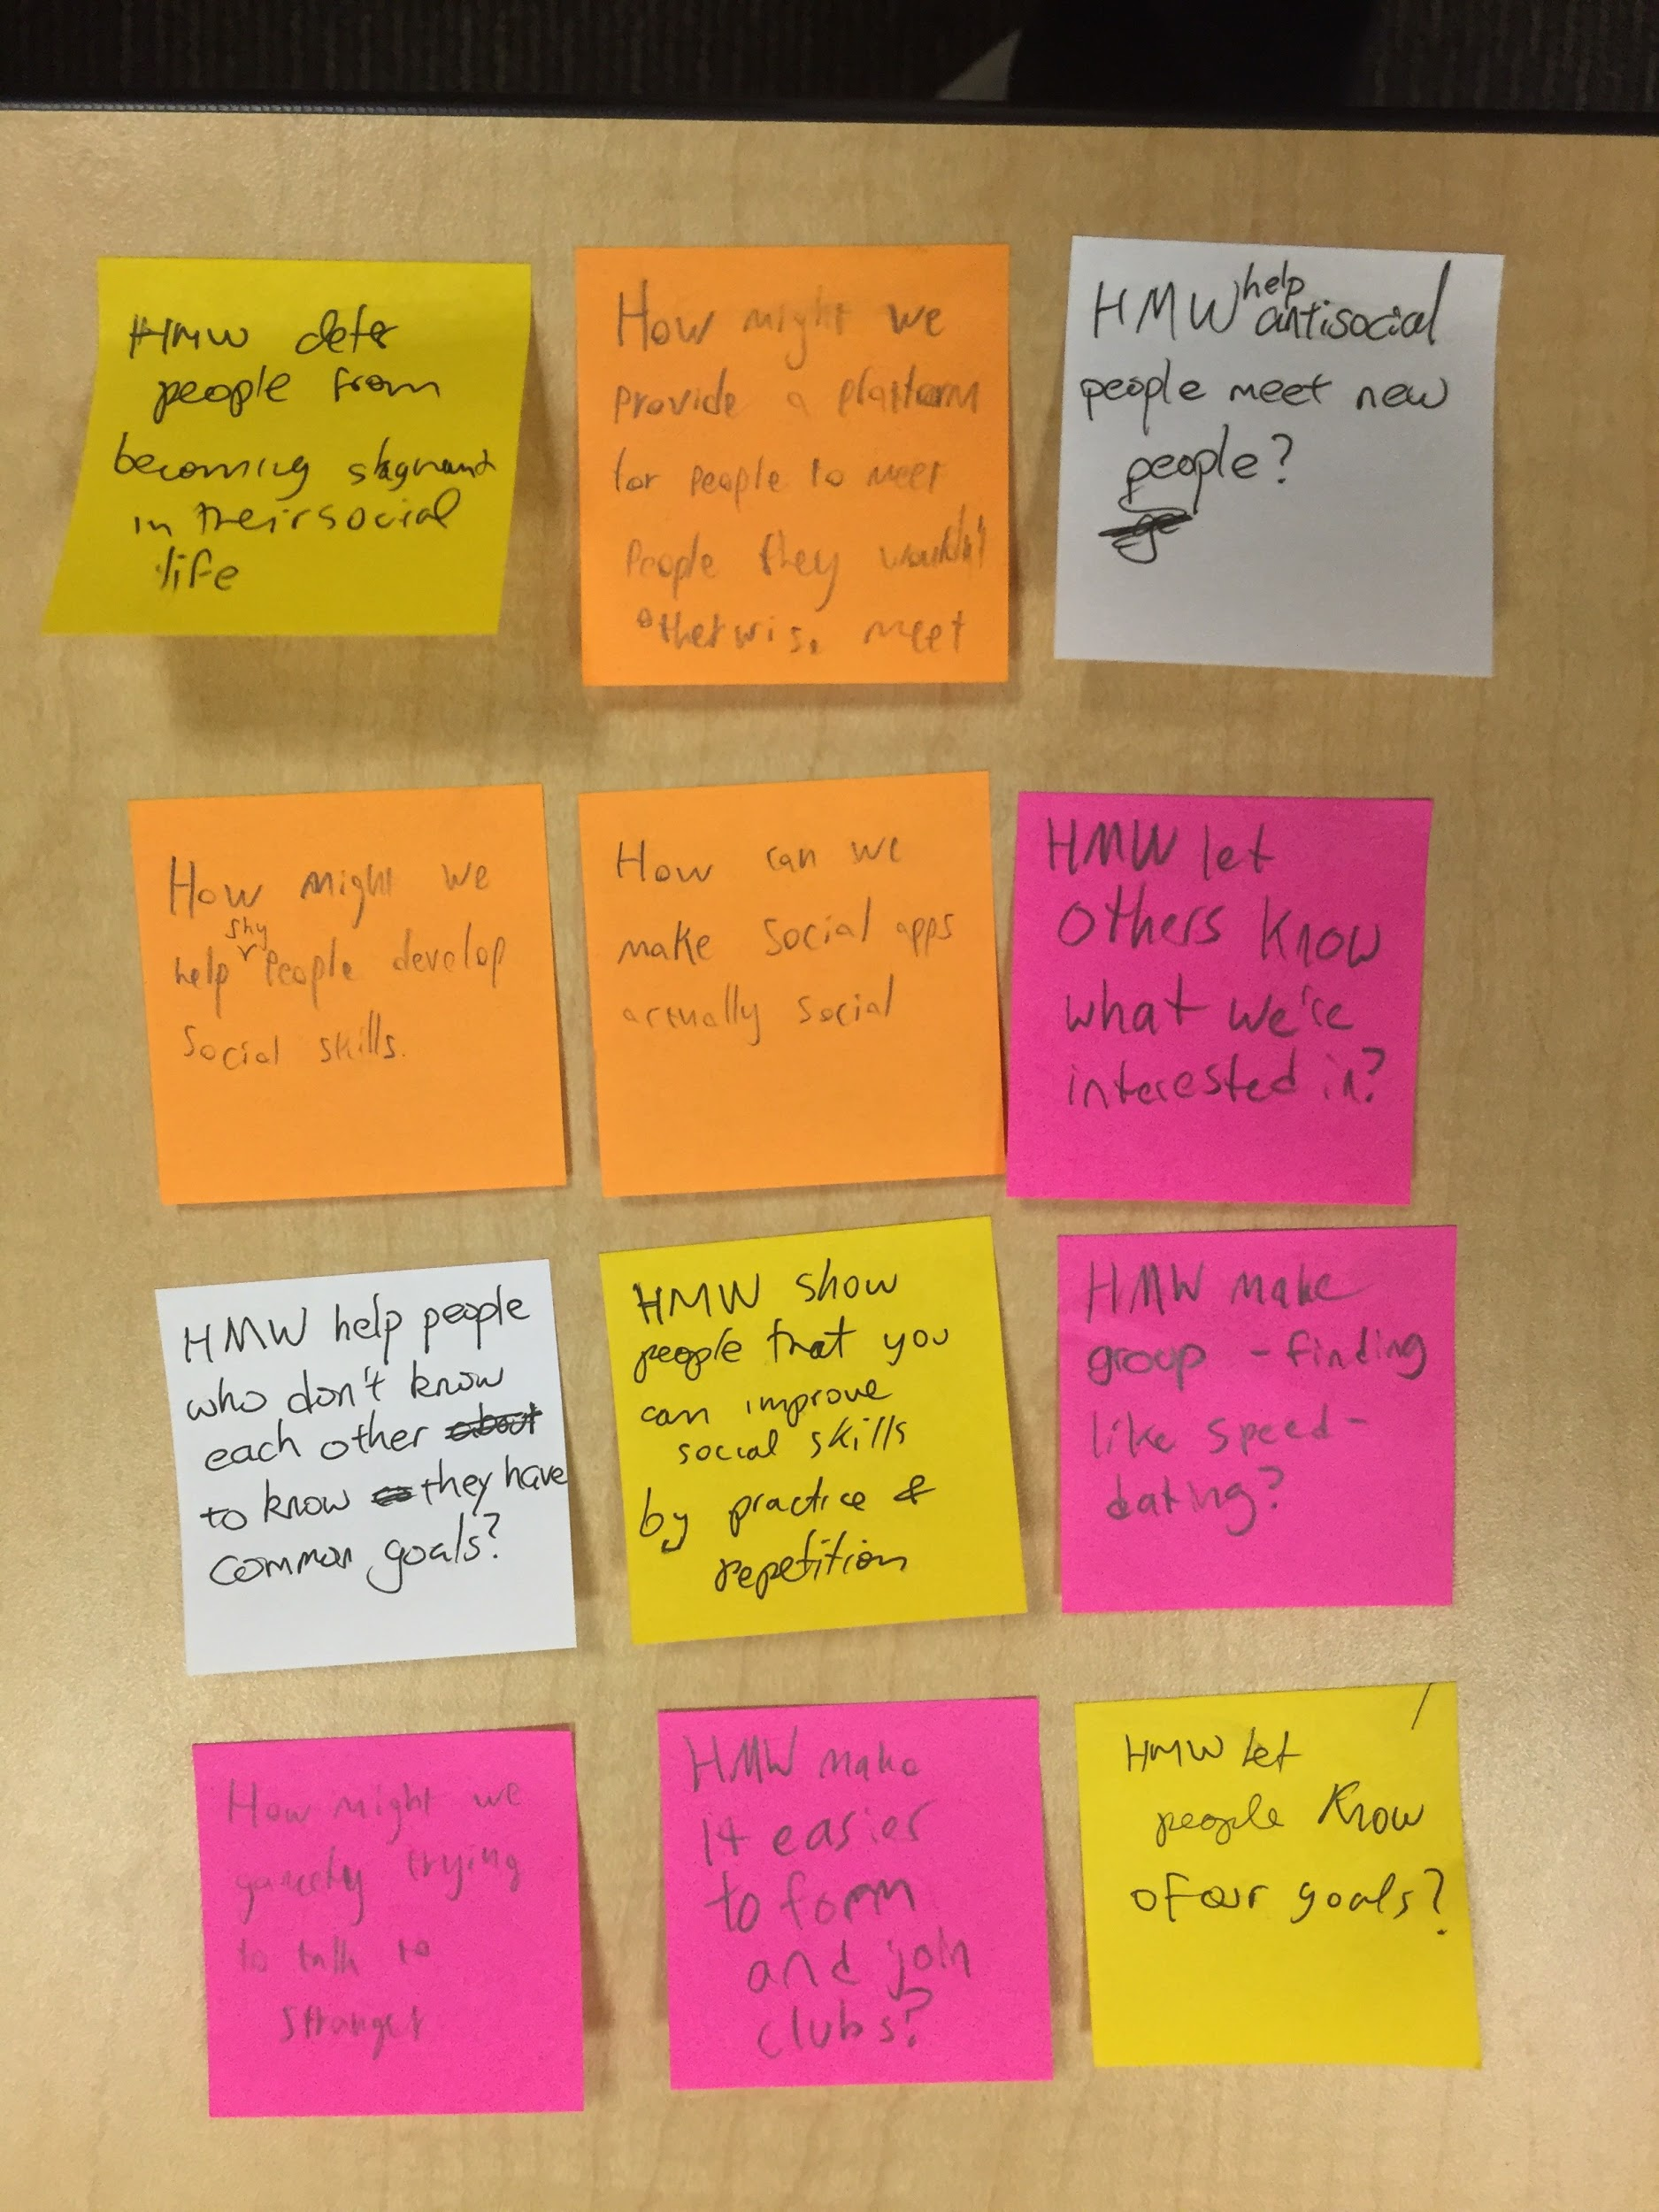 HMW deter
people from
becoming stagnant
in their social
life
How might we
provide a platform
for people to meet
People they wouldn't
otherwise meet
HMW help antisocial
people meet new
people?
How might we
help shy People develop
Social skills.
How can we
make Social apps
actually social
HMW let
others know
what we're
interested in?
HMW help people
who don't know
each other about
to know they have
common goals?
HMW show
people that you
can improve
social skills
by practice &
repetition
HMW make
group - finding
like speed -
dating?
How might we
trying
to talk to
stranger
HMW make
it easier
to form
and join
clubs?
HMW let
people know
of our goals?